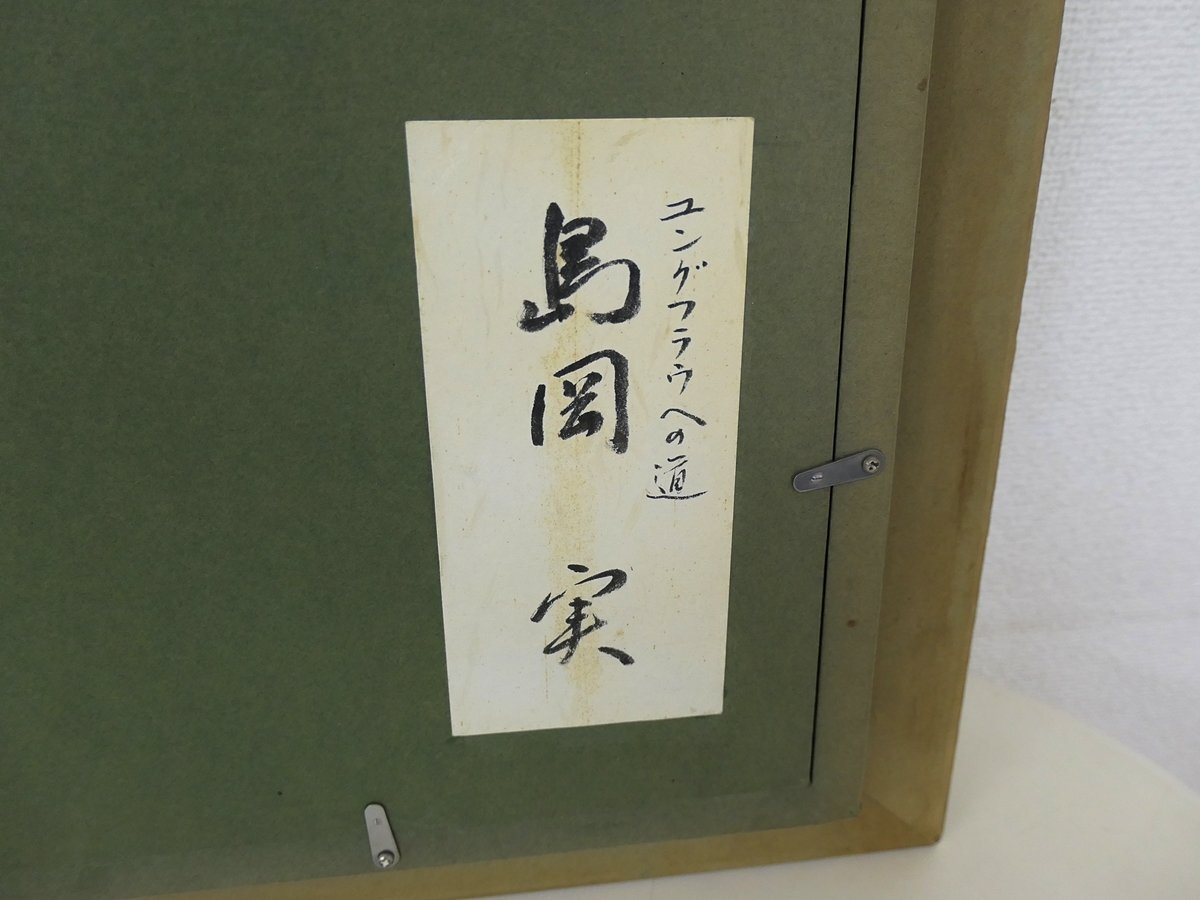 ユングフラウへの道
島岡 実